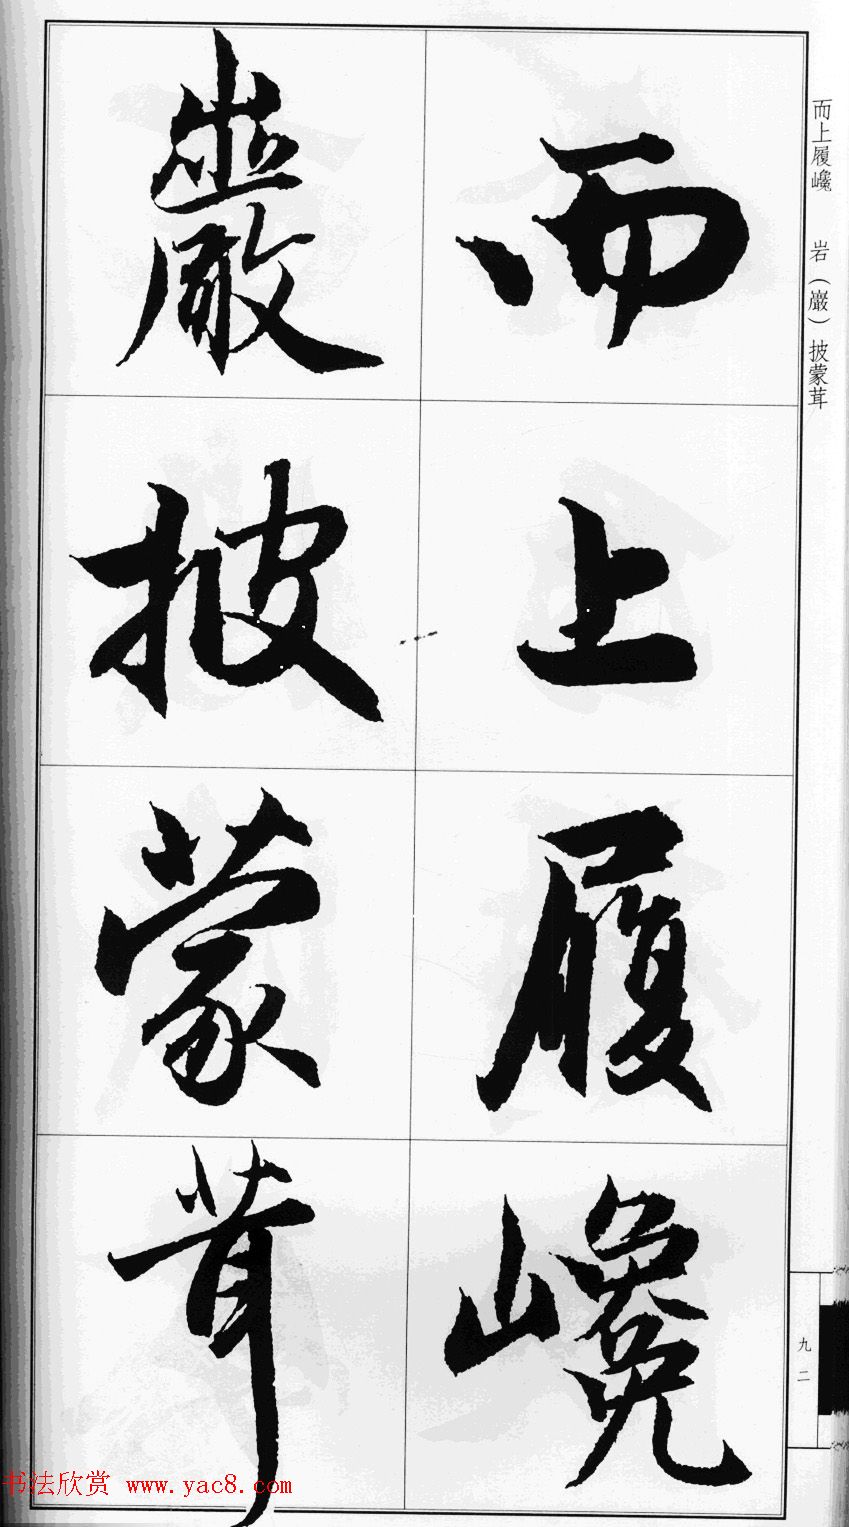 而上履巉
巖披蒙茸
而上履巉 岩（巖）披蒙茸
九二
书法欣赏 www.yac8.com